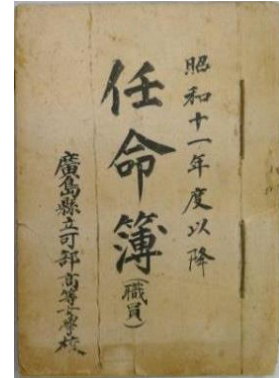 昭和十一年度以降
任命簿(職員)
廣島縣立可部高等女學校